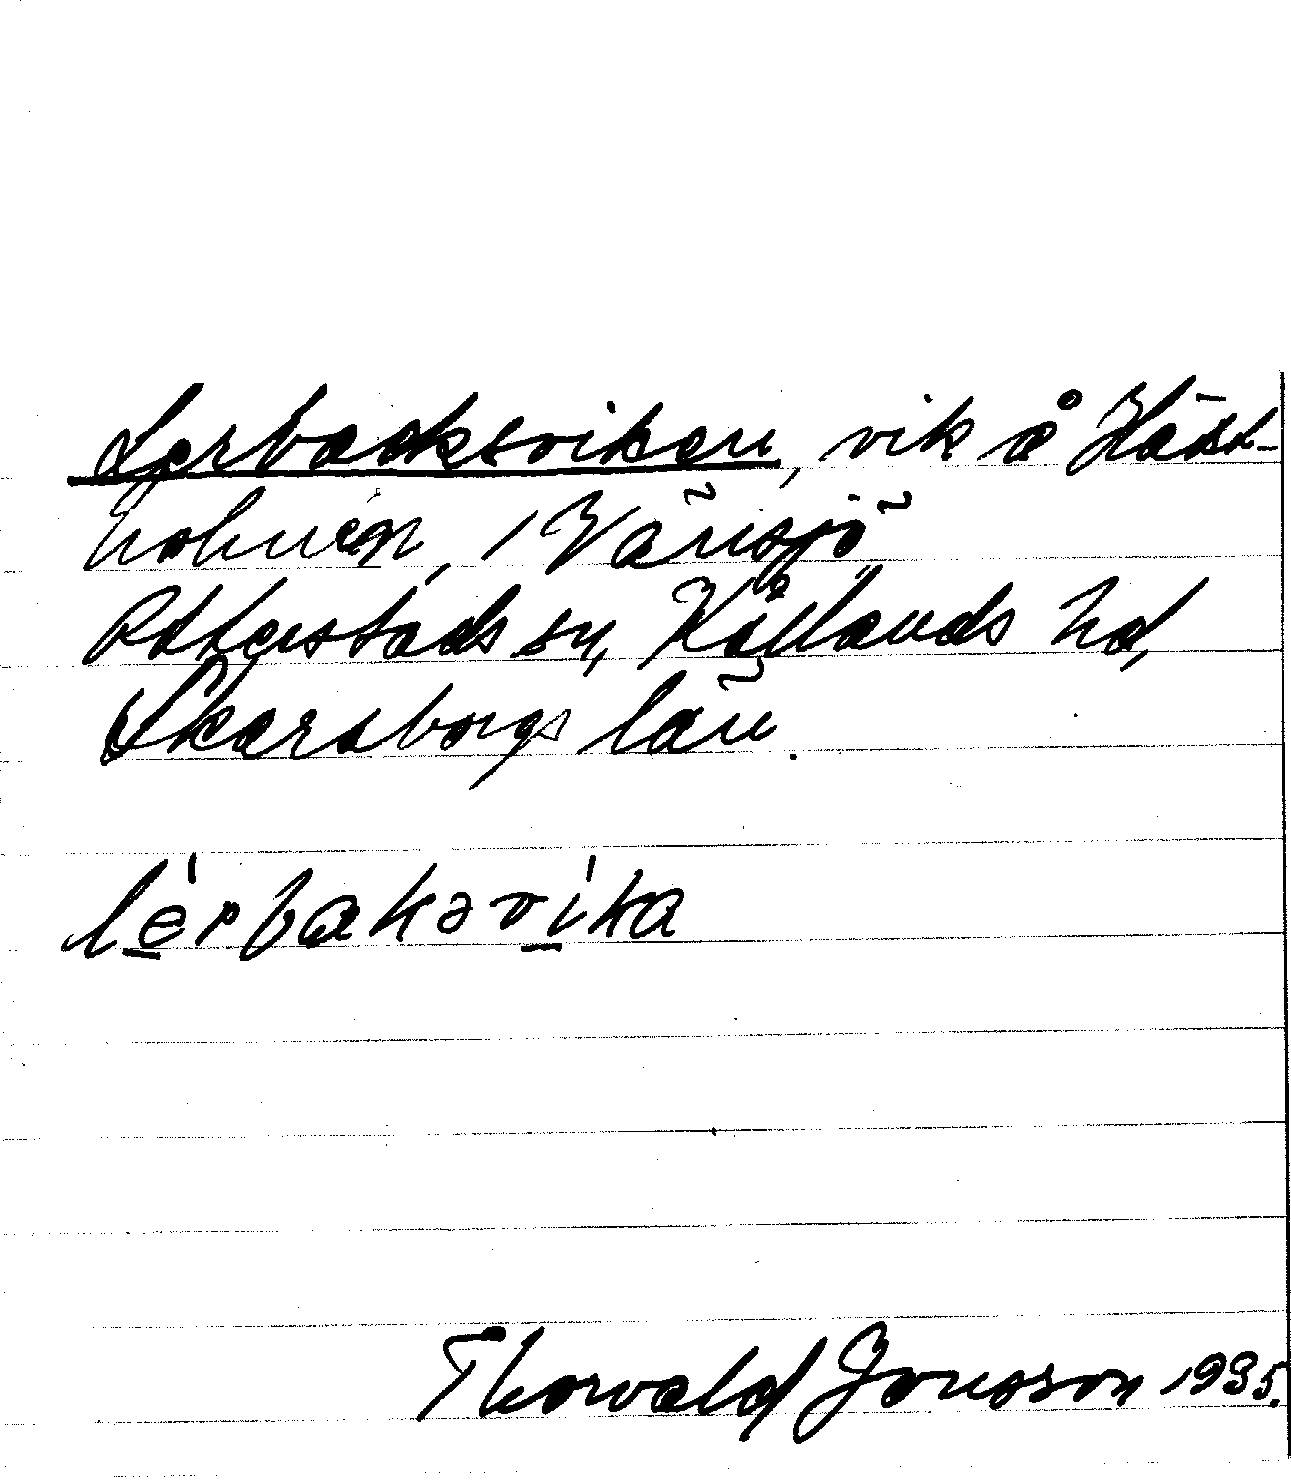 Lerbacksviken, vik å Häst-
holmen, i Vänsjö
Otterstads sn, Kållands hd,
Skaraborgs län.
lérbaksvika
Thorvald Jonsson 1935.